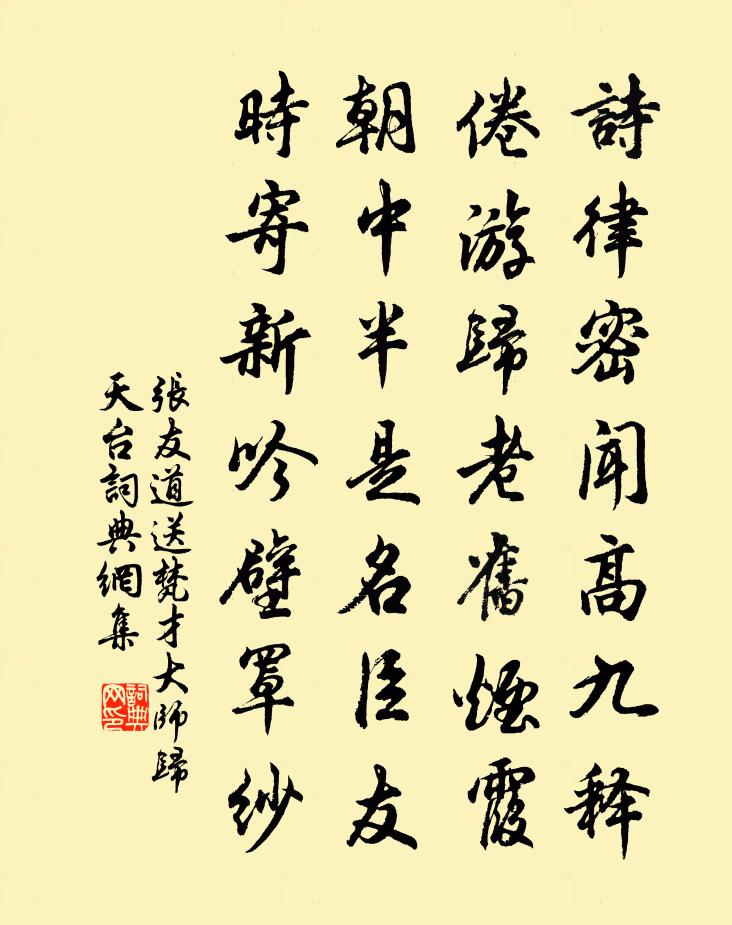 詩律密闻高九释
倦游歸老舊煙霞
朝中半是名臣友
時寄新吟壁罩紗
張友道送梵才大師歸
天台詞典網集
詞典網印